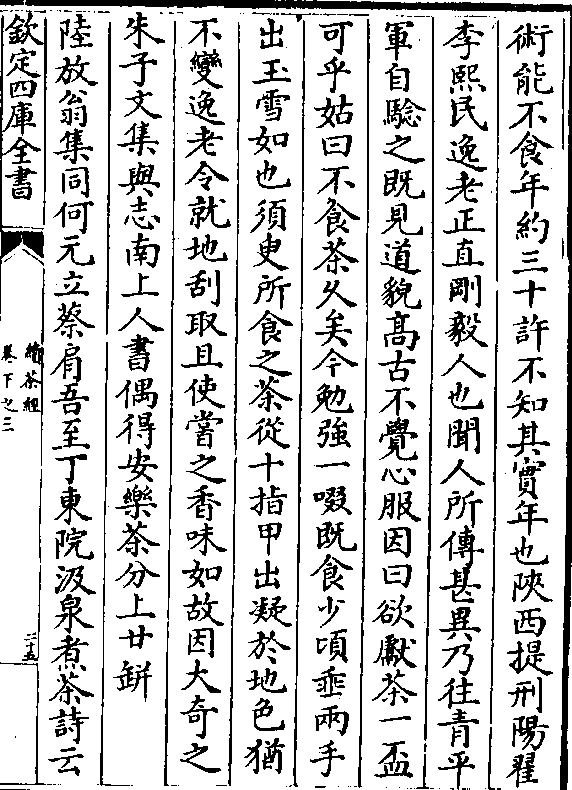 術能不食年約三十許不知其實年也陝西提刑陽翟
李熙民逸老正直剛毅人也聞人所傳甚異乃往青平
軍自驗之既見道貌髙古不覺心服因曰欲獻茶一盃
可乎姑曰不食茶乆矣今勉強一啜既食少頃垂兩手
出玉雪如也須臾所食之茶從十指甲出凝於地色猶
不變逸老令就地刮取且使嘗之香味如故因大奇之
朱子文集與志南上人書偶得安樂茶分上廿缾
陸放翁集同何元立蔡肩吾至丁東院汲泉煮茶詩云
欽定四庫全書
續茶經
卷下之三
三五